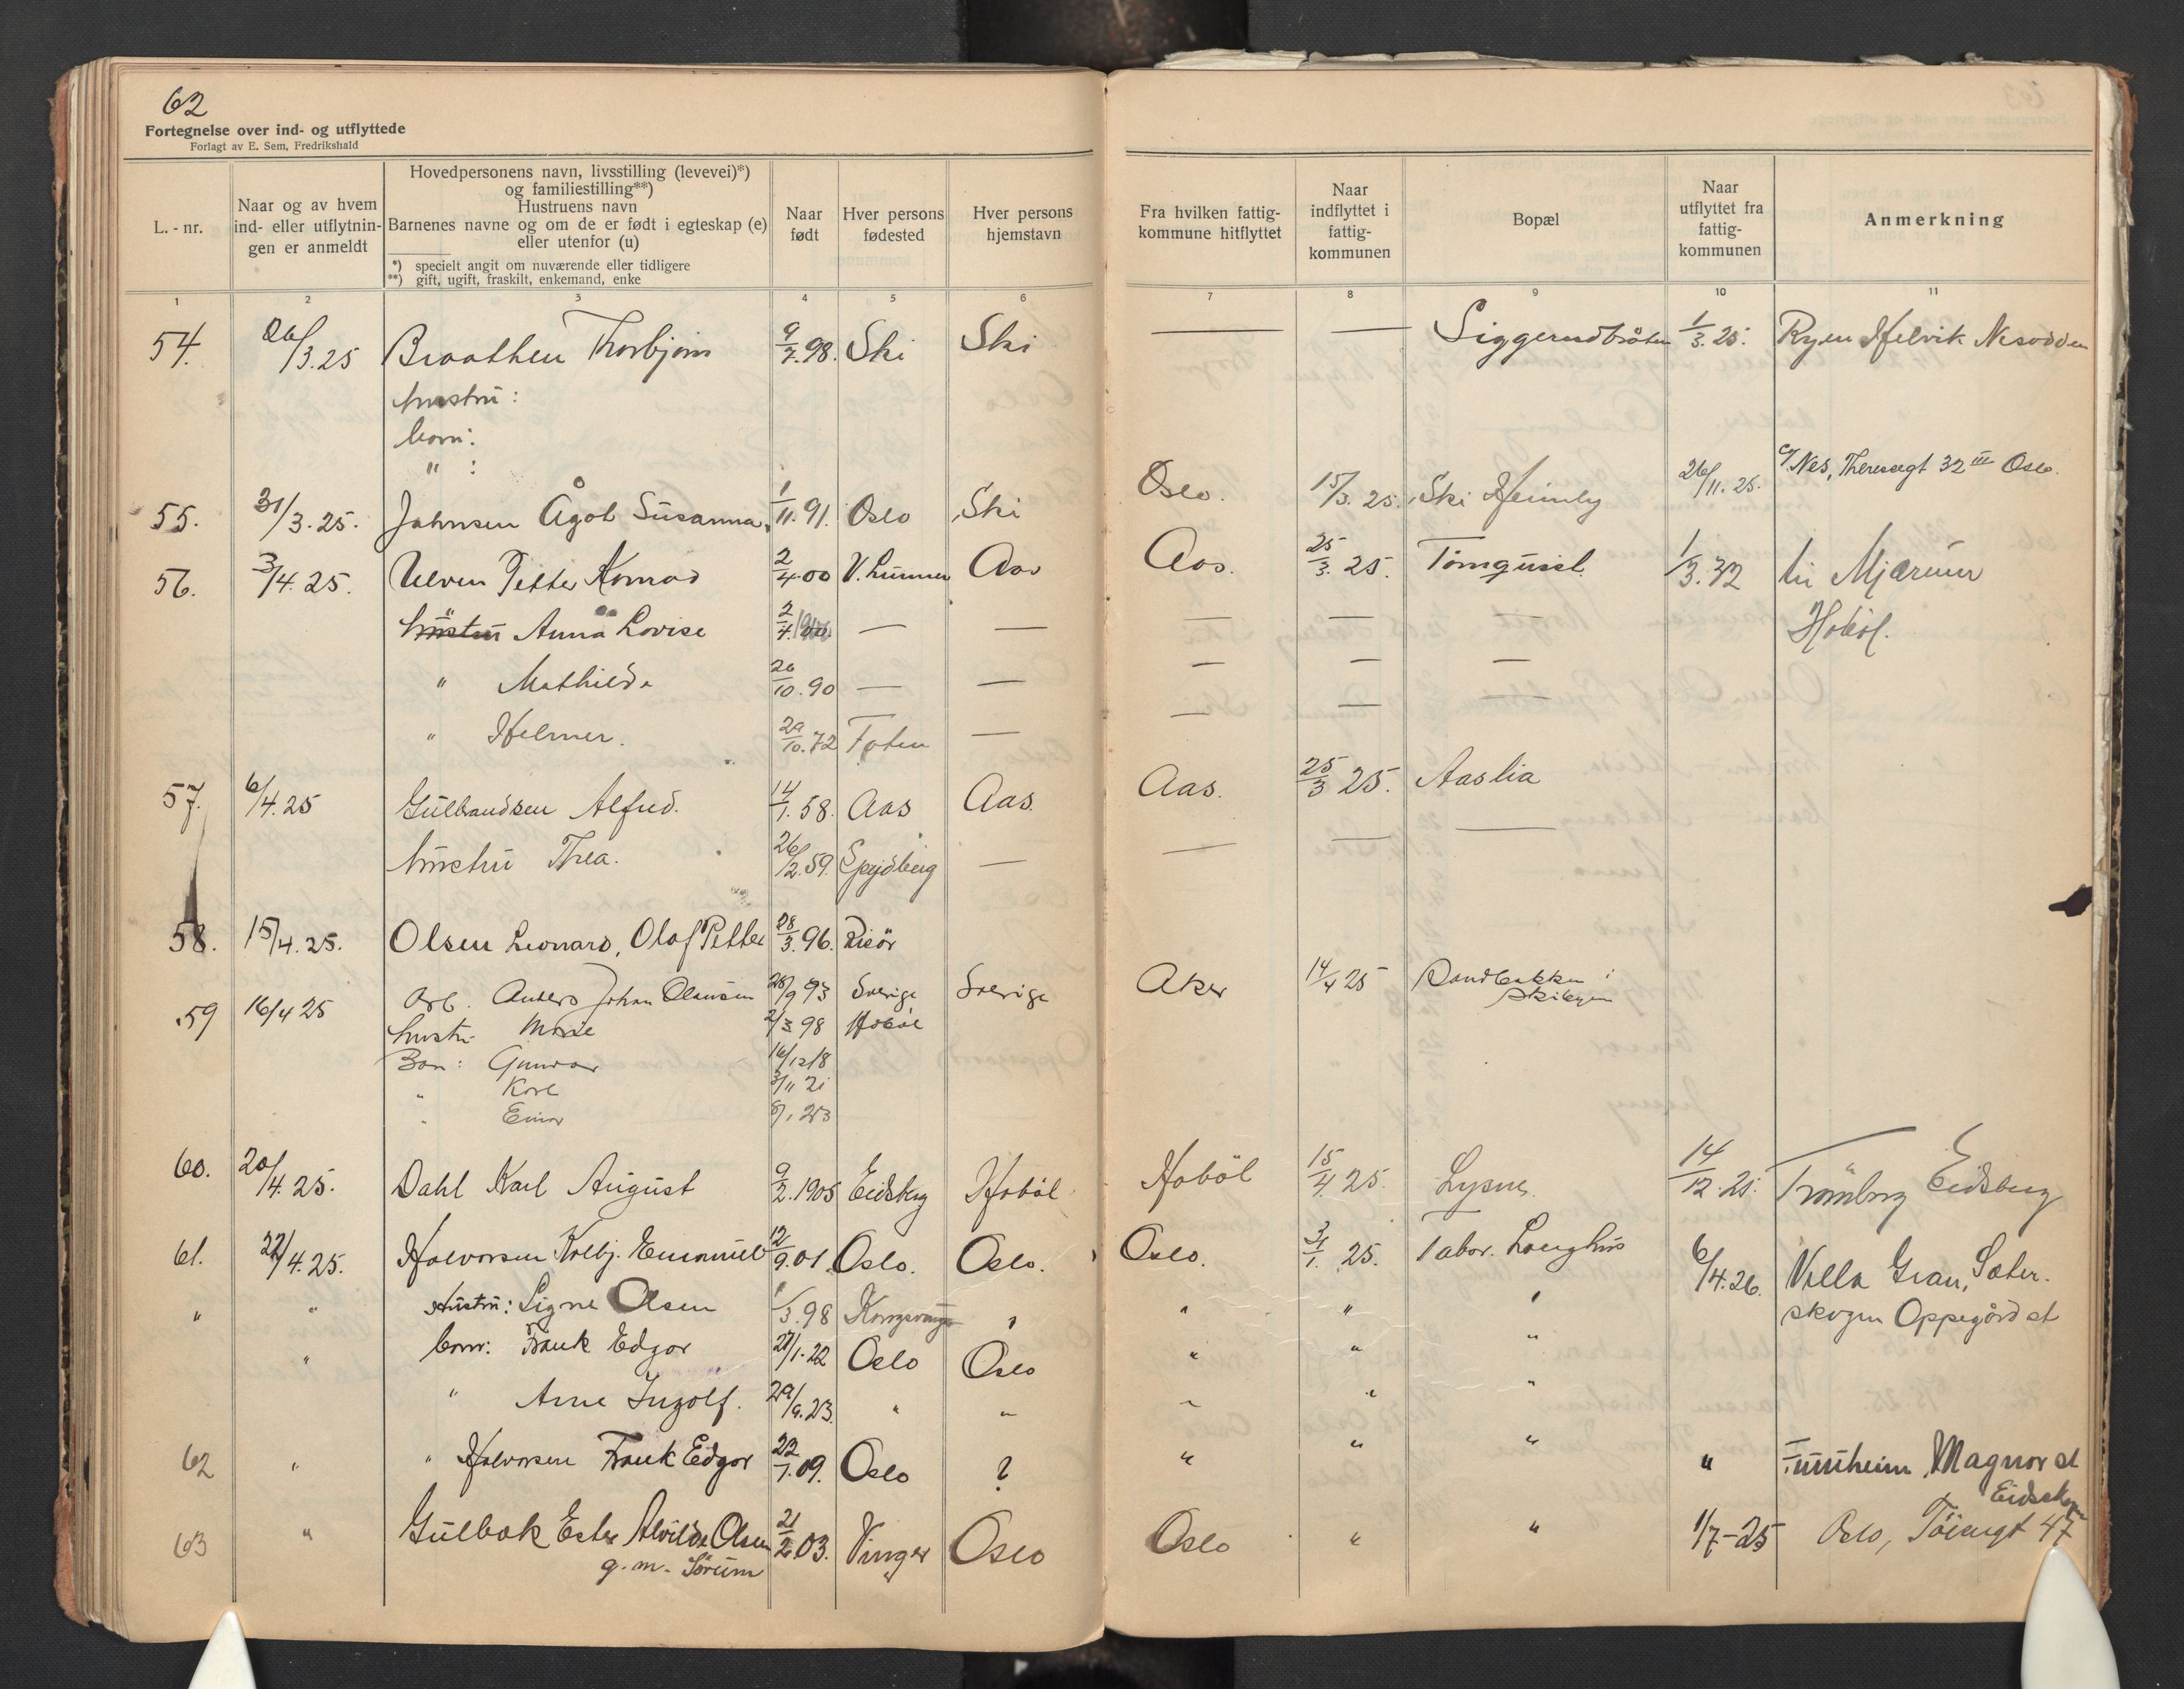 62
Fortegnelse over ind- og utflyttede
Forlagt av E. Sem, Fredrikshald
L. - nr.
Naar og av hvem ind- eller utflytnin- gen er anmeldt
Hovedpersonens navn, livsstilling (levevei)*)
og familiestilling**)
Hustruens navn
Barnenes navne og om de er født i egteskap (e)
eller utenfor (u)
*) specielt angit om nuværende eller tidligere
**) gift, ugift, fraskilt, enkemand, enke
Naar født
Hver persons fødested
Hver persons hjemstavn
Fra hvilken fattig- kommune hitflyttet
Naar indflyttet i fattig- kommunen
Bopæl
Naar utflyttet fra fattig- kommunen
Anmerkning
1 2 3 4 5 6 7 8 9 10 11
54. 26/3.25 Braathen Thorbjørn 9/7.98. Ski Ski — — Siggerudbråten 1/3.25. Ryen Helvik Nesodden
hustru:
barn:
" :
55. 31/3.25. Johnsen Ågot Susanna. 1/11.91. Oslo Ski Oslo. 15/3.25. Ski Heimly 26/11.25. c/ Nes, Theresegt 32 III Oslo.
56. 3/4.25. Ulven Petter Konrad 2/4.00 V. Lunner Aas Aas. 25/3.25. Tomgussl. 1/3.32 til Mjærum
hustru Anna Lovise 2/4. — — — — — Hobøl.
" Mathilde 20/10.90 — — — — —
" Helmer. 29/10.72 Toten — — — —
57. 6/4.25 Gulbrandsen Alfred. 14/1.58. Aas Aas. Aas. 25/3 25. Aaslia
hustru Thea. 26/2.59. Spydberg — — — —
58. 15/4.25. Olsen Leonard, Olaf Petter 28/3.96. Risör
59 16/4 25 Arb. Anders Johan Olausen 28/9 93 Sverige Sverige Aker 14/4 25 Sandbakken i
Skibyen
hustr. Marie 2/3 98 Hobøl
Barn: Gunvor 16/12 18
" Karl 3/11 21
" Einar 8/1 23
60. 20/4.25. Dahl Karl August 9/2.1905 Eidsberg Hobøl Hobøl 15/4.25. Lysne. 14/12.25. Trømborg Eidsberg
61. 22/4.25. Halvorsen Kolbj. Emanuel 12/9.01. Oslo. Oslo. Oslo. 31/1. 25. Tabor. Langhus 6/4.26. Villa Gran, Sæter.
" " Hustru: Signe Olsen 1/3.98 Kongsvinger " " " " skogen Oppegård st
" barn: Frank Edgar 27/1.22 Oslo Oslo " " "
" Arne Ingolf. 29/9.23. " " " " "
62 " " Halvorsen Frank Edgar 22/1.09. Oslo ? " " " " Tunheim, Magnor st
Eidskogen
63 " Gulbak Ester Alvilde Olsen 21/2.03. Vinger Oslo Oslo " " 1/7-25 Oslo, Töiengt 47
g. m. Sørum